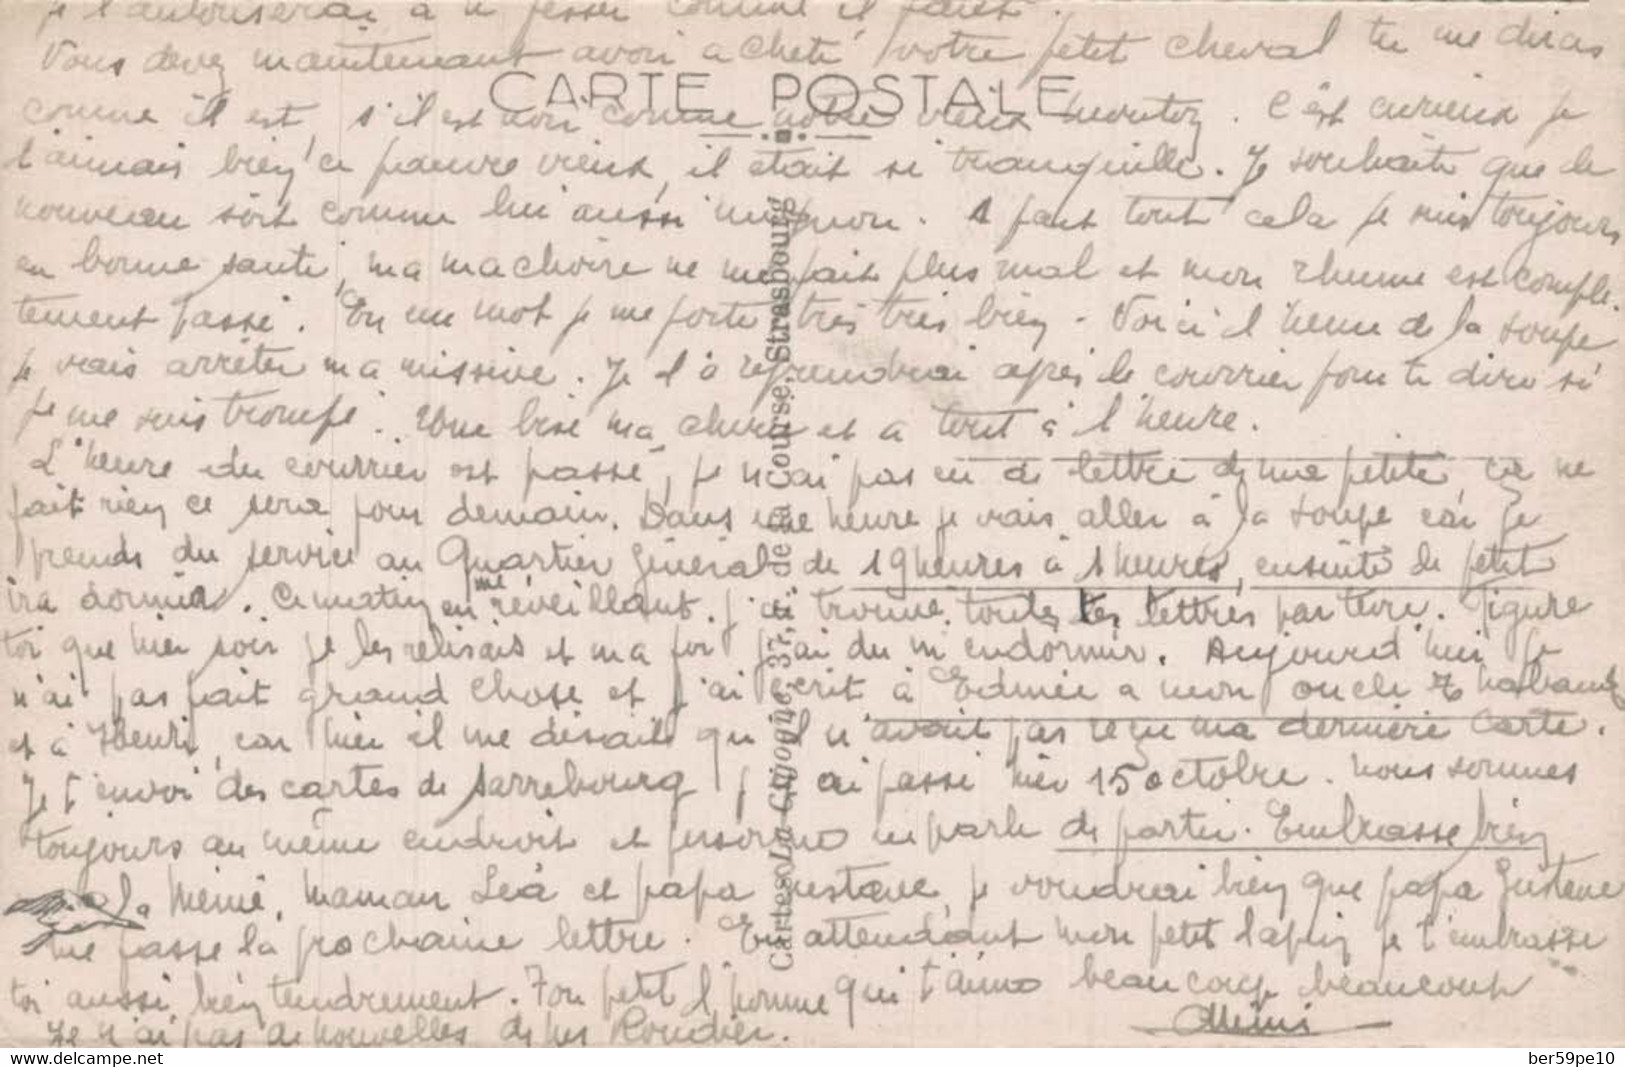 je t'autoriserai à te fesser comme il faut.
Vous devez maintenant avoir acheté votre petit cheval tu me diras
CARTE POSTALE
comme il est, s'il est noir comme notre vieux. C'est curieux je
l'aimais bien ce pauvre vieux, il était si tranquille. Je souhaite que le
nouveau soit comme lui aussi mignon. A part tout cela je suis toujours
en bonne santé, ma machoire ne me fait plus mal et mon rhume est complè-
tement passé. En un mot je me porte très très bien. Voici l'heure de la soupe
je vais arrêter ma missive. Je la reprendrai après le courrier pour te dire si
je me suis trompé. Une bise ma chérie et a tout à l'heure.
L'heure du courrier est passé, je n'ai pas eu de lettre de ma petite, ça ne
fait rien ce sera pour demain. Dans une heure je vais aller à la soupe car je
prends du service au Quartier Général de 19 heures à 1 heures, ensuite le petit
ira dormir. Ce matin en me réveillant j'ai trouvé toutes tes lettres par terre. Figure
toi que hier soir je les relisais et ma foi j'ai du m'endormir. Aujourd'hui je
n'ai pas fait grand chose et j'ai écrit à Edmée a mon oncle
et à Henri, car hier il me disait qu'il n'avait pas reçu ma dernière carte.
Je t'envoi des cartes de Sarrebourg j'y ai passé hier 15 octobre. Nous sommes
toujours au même endroit et personne ne parle de partir. Embrasse bien
la Mémé, maman Léa et papa Gustave, je voudrai bien que papa Gustave
me fasse la prochaine lettre. En attendant mon petit lapin je t'embrasse
toi aussi bien tendrement. Ton petit l'homme qui t'aime beaucoup beaucoup
Mimi
Je n'ai pas de nouvelles de les Roudier.
Cartes La Cigogne, 37, de la Course, Strasbourg
Item location on delcampe.net
ber59pe10